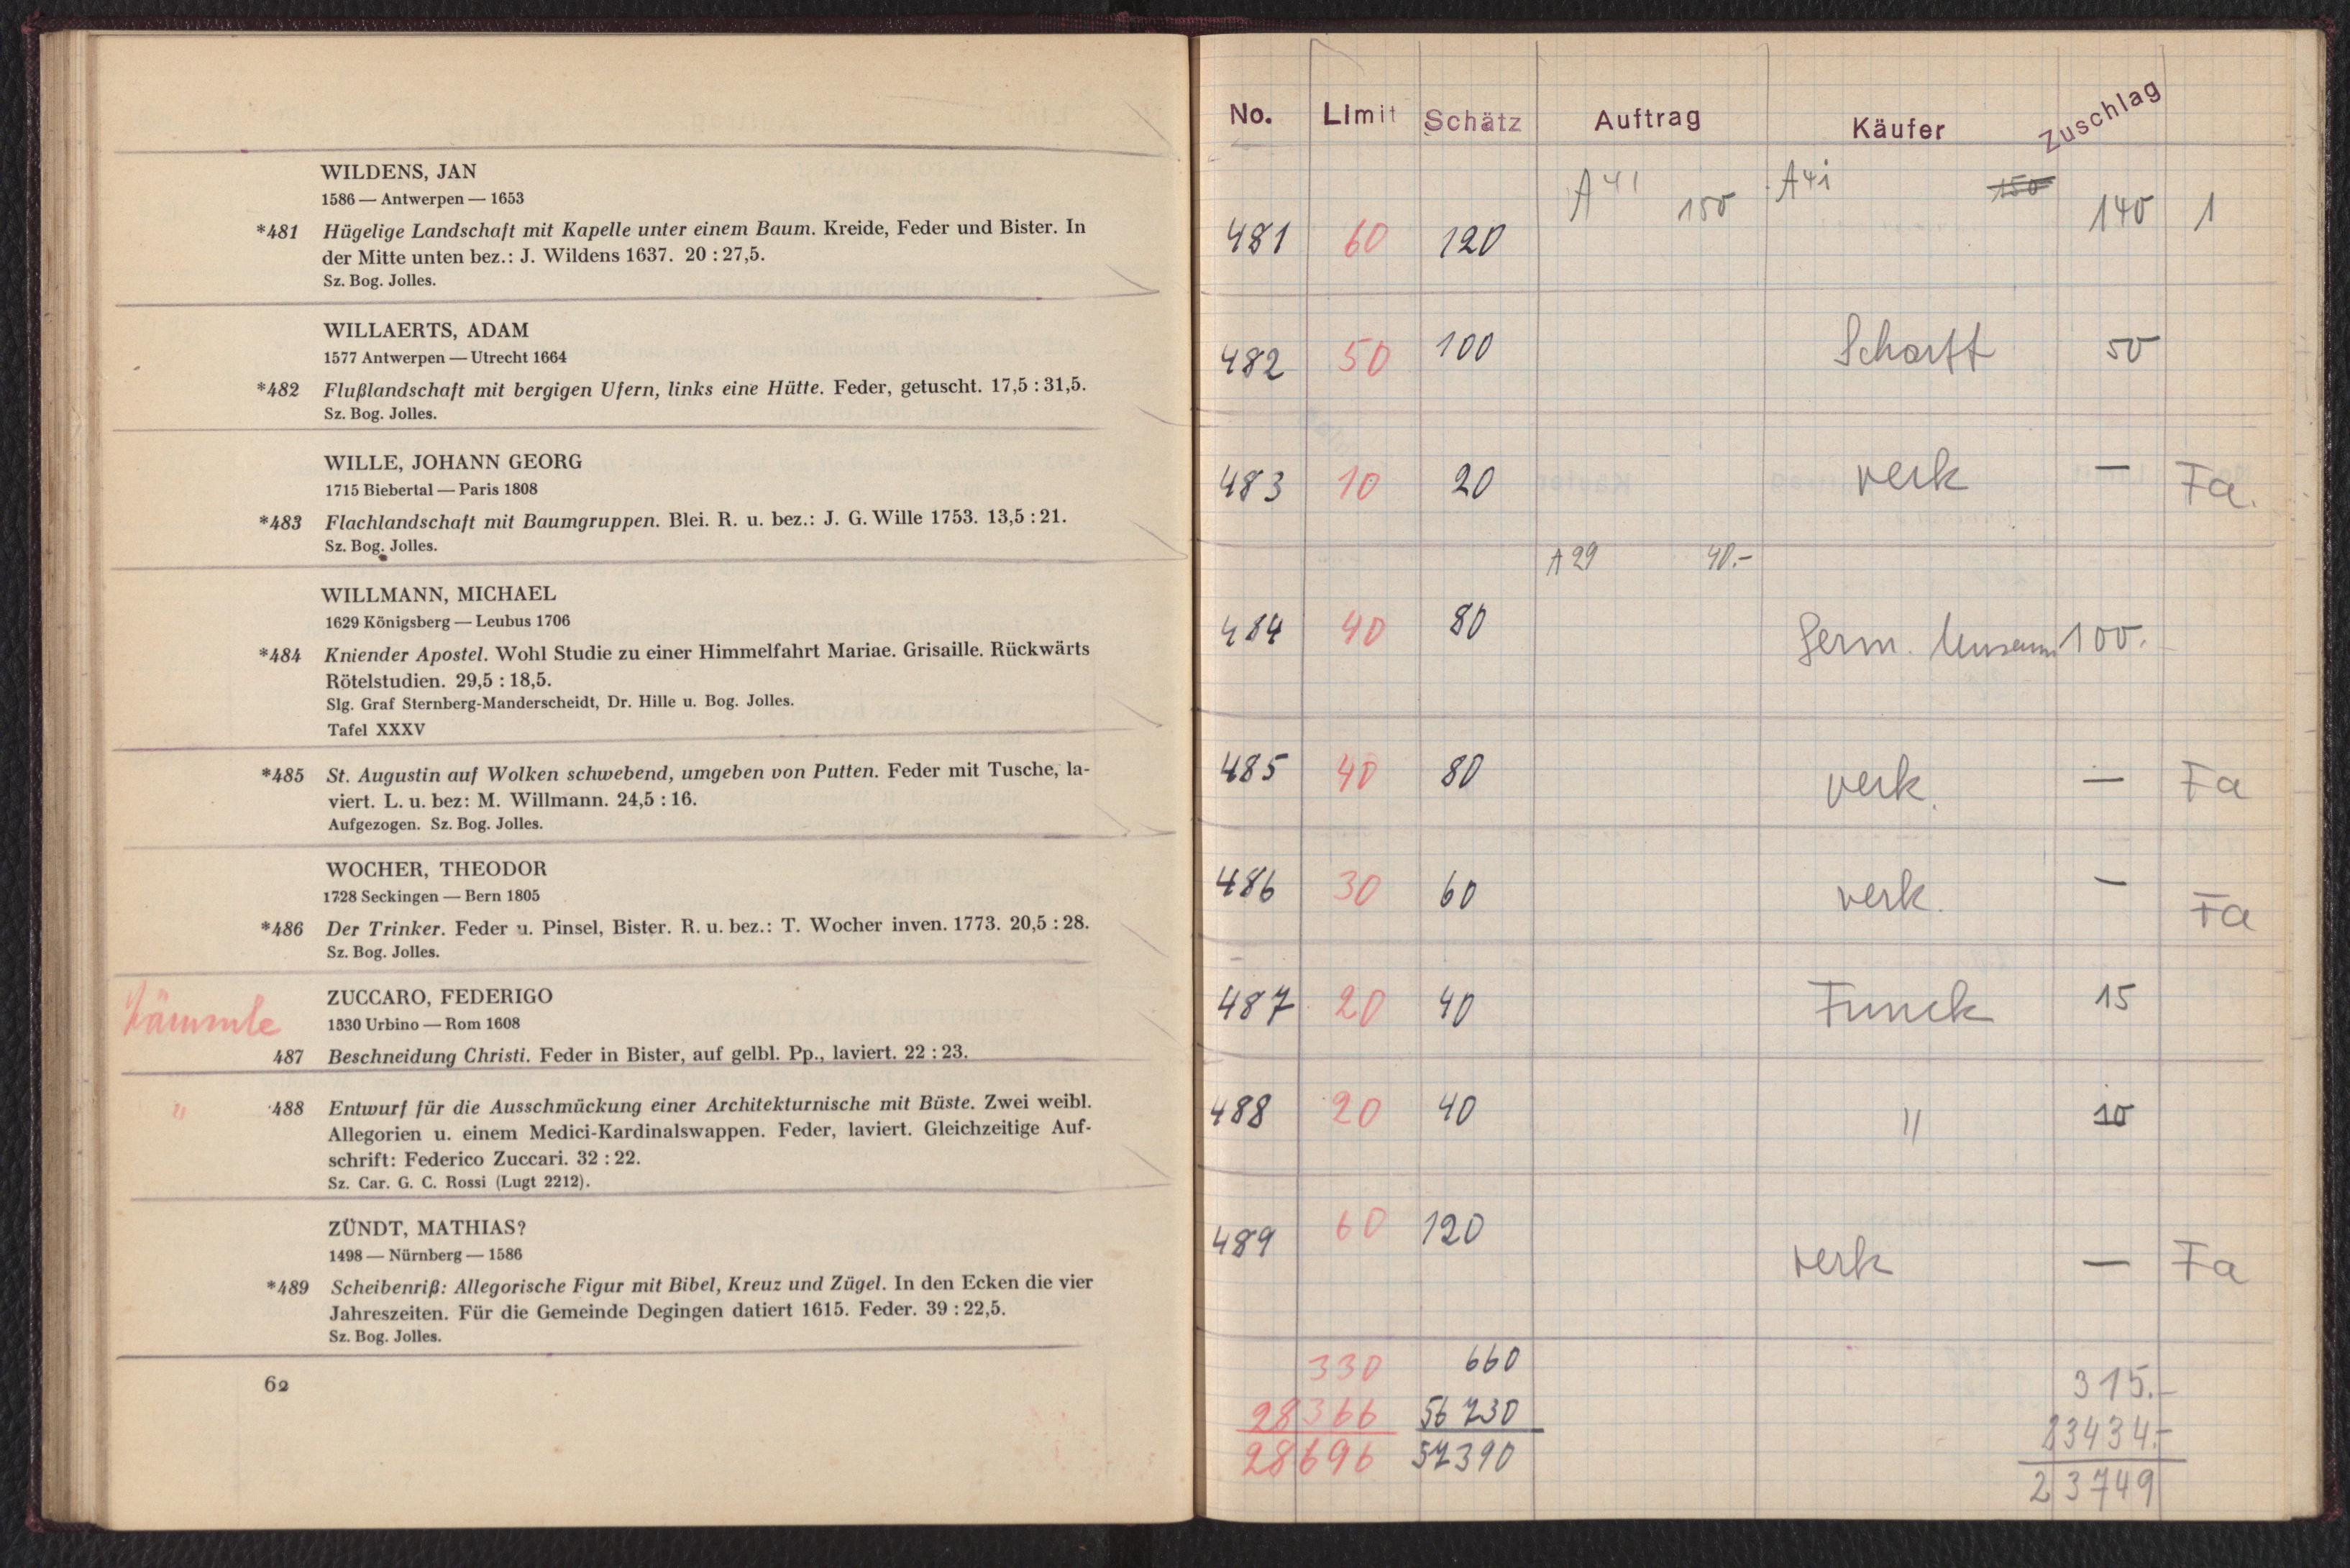 WILDENS, JAN
1586 — Antwerpen — 1653
*481 Hügelige Landschaft mit Kapelle unter einem Baum. Kreide, Feder und Bister. In
der Mitte unten bez.: J. Wildens 1637. 20 : 27,5.
Sz. Bog. Jolles.
WILLAERTS, ADAM
1577 Antwerpen — Utrecht 1664
*482 Flußlandschaft mit bergigen Ufern, links eine Hütte. Feder, getuscht. 17,5 : 31,5.
Sz. Bog. Jolles.
WILLE, JOHANN GEORG
1715 Biebertal — Paris 1808
*483 Flachlandschaft mit Baumgruppen. Blei. R. u. bez.: J. G. Wille 1753. 13,5 : 21.
Sz. Bog. Jolles.
WILLMANN, MICHAEL
1629 Königsberg — Leubus 1706
*484 Kniender Apostel. Wohl Studie zu einer Himmelfahrt Mariae. Grisaille. Rückwärts
Rötelstudien. 29,5 : 18,5.
Slg. Graf Sternberg-Manderscheidt, Dr. Hille u. Bog. Jolles.
Tafel XXXV
*485 St. Augustin auf Wolken schwebend, umgeben von Putten. Feder mit Tusche, la-
viert. L. u. bez: M. Willmann. 24,5 : 16.
Aufgezogen. Sz. Bog. Jolles.
WOCHER, THEODOR
1728 Seckingen — Bern 1805
*486 Der Trinker. Feder u. Pinsel, Bister. R. u. bez.: T. Wocher inven. 1773. 20,5 : 28.
Sz. Bog. Jolles.
ZUCCARO, FEDERIGO
1530 Urbino — Rom 1608
487 Beschneidung Christi. Feder in Bister, auf gelbl. Pp., laviert. 22 : 23.
" 488 Entwurf für die Ausschmückung einer Architekturnische mit Büste. Zwei weibl.
Allegorien u. einem Medici-Kardinalswappen. Feder, laviert. Gleichzeitige Auf-
schrift: Federico Zuccari. 32 : 22.
Sz. Car. G. C. Rossi (Lugt 2212).
ZÜNDT, MATHIAS?
1498 — Nürnberg — 1586
*489 Scheibenriß: Allegorische Figur mit Bibel, Kreuz und Zügel. In den Ecken die vier
Jahreszeiten. Für die Gemeinde Degingen datiert 1615. Feder. 39 : 22,5.
Sz. Bog. Jolles.
62
No. Limit Schätz Auftrag Käufer Zuschlag
A 41 150 A 41 150
481 60 120 140 1
482 50 100 Scharff 50
483 10 20 verk — Fa.
A 29 40.-
484 40 80 Germ. Museum 100.
485 40 80 verk. — Fa
486 30 60 verk. — Fa
487 20 40 Funck 15
488 20 40 " 10
489 60 120 verk — Fa
330 660 315.-
28366 56730 23434.-
28696 57390 23749